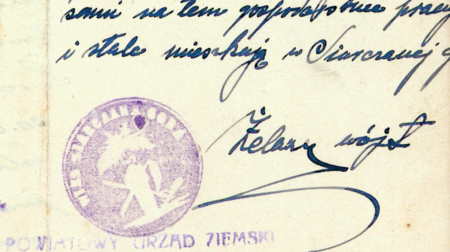 sami na tem gospodarstwie pracuj
i stale mieszkają w Siarczanej g
Żelazny wójt
POWIATOWY URZĄD ZIEMSKI